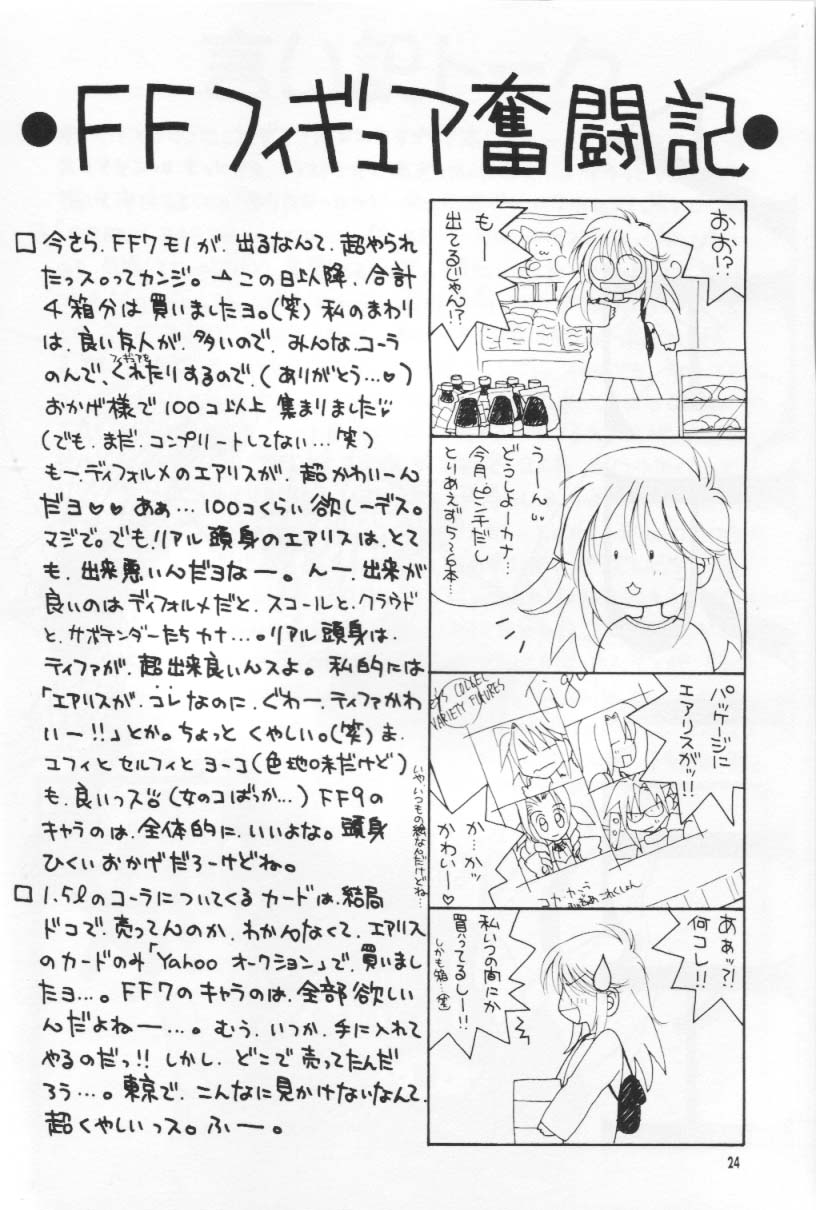 ●FFフィギュア奮闘記●
おお!?
もー
出てるじゃん!?
うーん〃
どうしよーカナ…
今月、ピンチだし
とりあえず5〜6本…
VARIETY FIGURES
パッケージに
エアリスがッ!!
か…かッ
かわいー♡
いや、いつもの絵なんだけどね…
あぁッ?!
何コレ!!
私いつの間にか
買ってるしー!!
しかも箱…(笑)
□今さら、FF7モノが、出るなんて、超やられ
たっス。ってカンジ。→この日以降、合計
4箱分は買いましたヨ。(笑)私のまわり
は、良い友人が、多いので、みんな、コーラ
のんで、フィギュアをくれたりするので、(ありがとう…♡)
おかげ様で100コ以上集まりました〃
(でも、まだ、コンプリートしてない…笑)
もー、ディフォルメのエアリスが、超かわいーん
だヨ♡♡あぁ…100コくらい欲しーデス。
マジで。でも、リアル頭身のエアリスは、とて
も、出来悪いんだヨなー。んー、出来が
良いのはディフォルメだと、スコールと、クラウド
と、サボテンダーたちカナ…。リアル頭身は、
ティファが、超出来良いんスよ。私的には
「エアリスが、コレなのに、ぐわー、ティファかわ
いー!!」とか。ちょっとくやしい。(笑)ま、
ユフィとセルフィとヨーコ(色地味だけど)
も、良いっス〃(女のコばっか…)FF9の
キャラのは、全体的に、いいよな。頭身
ひくいおかげだろーけどね。
□1.5ℓのコーラについてくるカードは、結局
ドコで、売ってんのか、わかんなくて、エアリス
のカードのみ「Yahooオークション」で、買いまし
たヨ…。FF7のキャラのは、全部欲しい
んだよねー…。むう、いつか、手に入れて
やるのだっ!!しかし、どこで売ってたんだ
ろう…。東京で、こんなに見かけないなんて、
超くやしいっス。ふー。
24